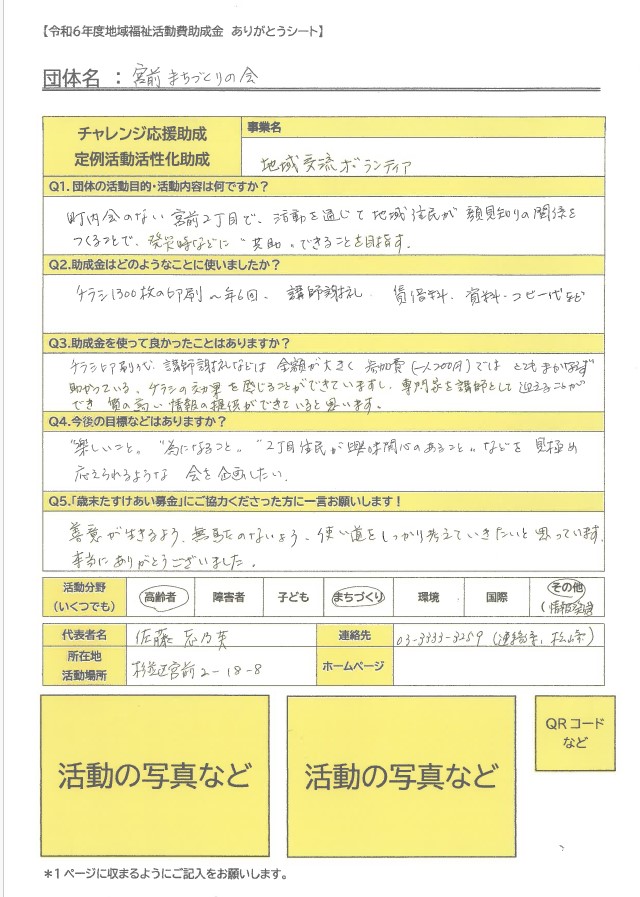 【令和6年度地域福祉活動費助成金 ありがとうシート】
団体名 : 宮前まちづくりの会
チャレンジ応援助成
定例活動活性化助成
事業名
地域交流ボランティア
Q1. 団体の活動目的・活動内容は何ですか？
町内会のない宮前2丁目で、活動を通じて地域住民が顔見知りの関係を
つくることで、発災時などに"共助"できることを目指す.
Q2.助成金はどのようなことに使いましたか？
チラシ1300枚の印刷〜年6回、講師謝礼、賃借料、資料・コピー代など
Q3.助成金を使って良かったことはありますか？
チラシ印刷や、講師謝礼などは金額が大きく参加費(一人200円)ではとてもまかなえず
助かっている、チラシの効果を感じることができていますし、専門家を講師として迎えることが
でき質の高い情報の提供ができていると思います。
Q4.今後の目標などはありますか？
"楽しいこと"、"為になること"、"2丁目住民が興味関心のあること"などを見極め
応えられるような会を企画したい.
Q5.「歳末たすけあい募金」にご協力くださった方に一言お願いします！
善意が生きるよう、無駄のないよう、使い道をしっかり考えていきたいと思っています.
本当にありがとうございました.
活動分野
(いくつでも)
高齢者 障害者 子ども まちづくり 環境 国際 その他
(情報発信
代表者名 佐藤 連絡先 03-3333-3259 (連絡先:松山宗)
所在地
活動場所
杉並区宮前2-18-8
ホームページ
活動の写真など
活動の写真など
QRコード
など
＊1ページに収まるようにご記入をお願いします。